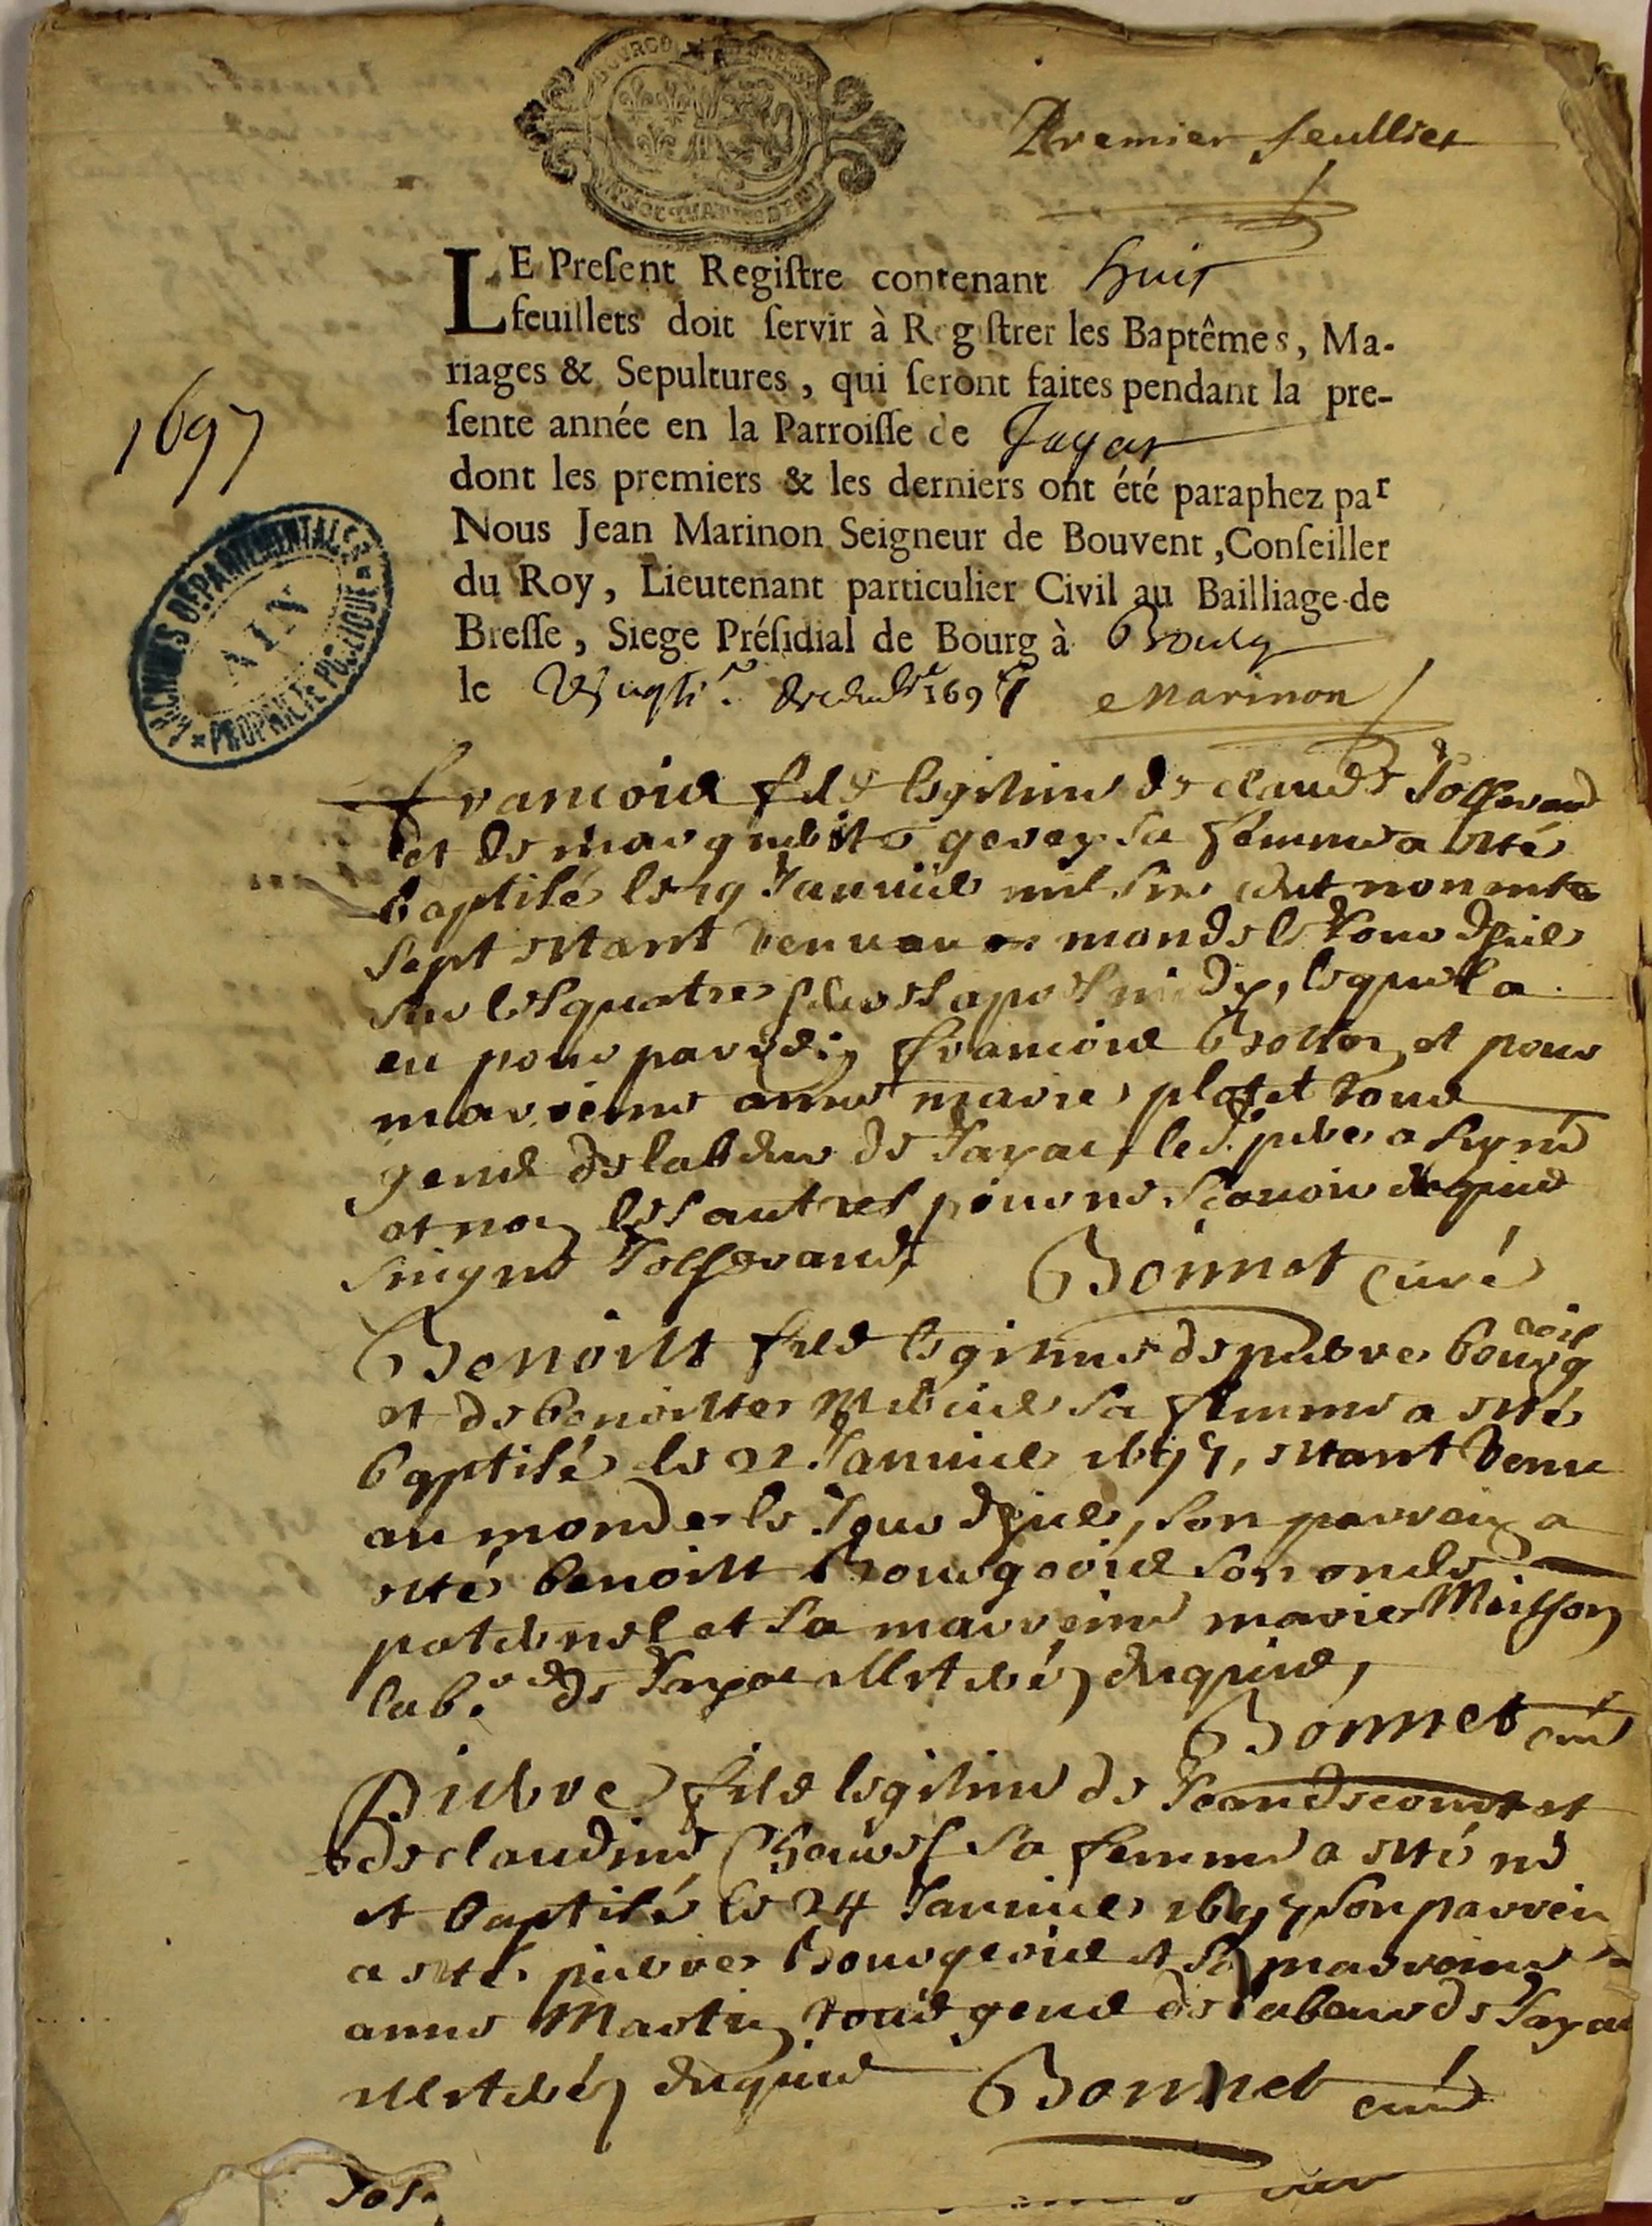 Premier feulliet
LE Preſent Regiſtre contenant huit
feuillets doit ſervir à Regiſtrer les Baptêmes, Ma-
riages & Sepultures, qui ſeront faites pendant la pre-
ſente année en la Parroiſſe de Jayat
1697
dont les premiers & les derniers ont été paraphez par
Nous Jean Marinon Seigneur de Bouvent, Conſeiller
du Roy, Lieutenant particulier Civil au Bailliage de
Breſſe, Siege Préſidial de Bourg à Bourg
le 169 Marinon
ARCHIVES DÉPARTEMENTALES
AIN
PROPRIÉTÉ PUBLIQUE
francois fils legitime de claude
et de marguerite gerey sa femme a esté
baptisé le 19 Januier mil six cent nonante
sept estant venu au monde le Jour d'hier
sur les quatre heures apres midy, lequel a
eu pour parrein francois et pour
marreine anne marie tous
gens de labeur de Jayac, le d. pere a signé
et non les autres pour ne scauoir enquis
signé Bonnet curé
Benoist fils legitime de pierre bourgeois
et de benoiste sa femme a esté
baptisé le 22 Januier 1697, estant venu
au monde le Jour d'hier, son parrein a
esté benoist Bourgeois son oncle
paternel et sa marreine marie Moisson
lab. de Jayac illeterés enquis,
Bonnet curé
Pierre fils legitime de Jean et
de claudine sa femme a esté né
et baptisé le 24 Januier 1697 son parrein
a esté pierre Bourgeois et sa marreine
anne Martin tous gens de labeur de Jayac
illeterés enquis Bonnet curé